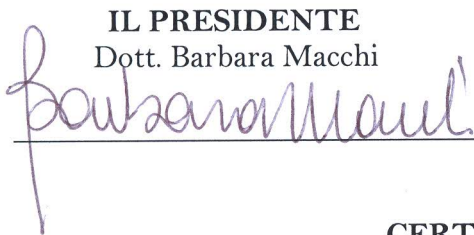 IL PRESIDENTE
Dott. Barbara Macchi
Barbara Macchi
CERT